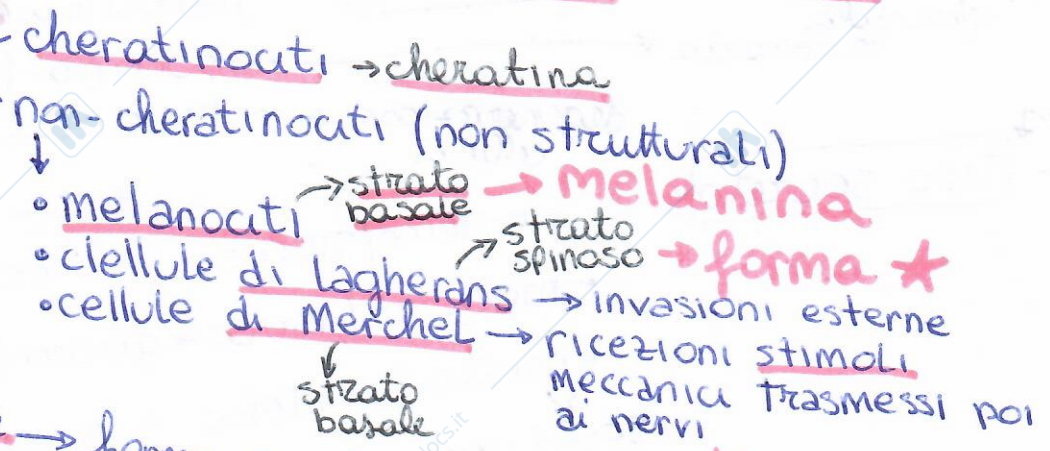 - cheratinociti → cheratina
- non-cheratinociti (non strutturali)
↓
• melanociti → strato basale → melanina
• clellule di Lagherans → strato spinoso → forma ★
→ invasioni esterne
• cellule di Merchel → ricezioni stimoli meccanici trasmessi poi ai nervi
↓
strato basale
→